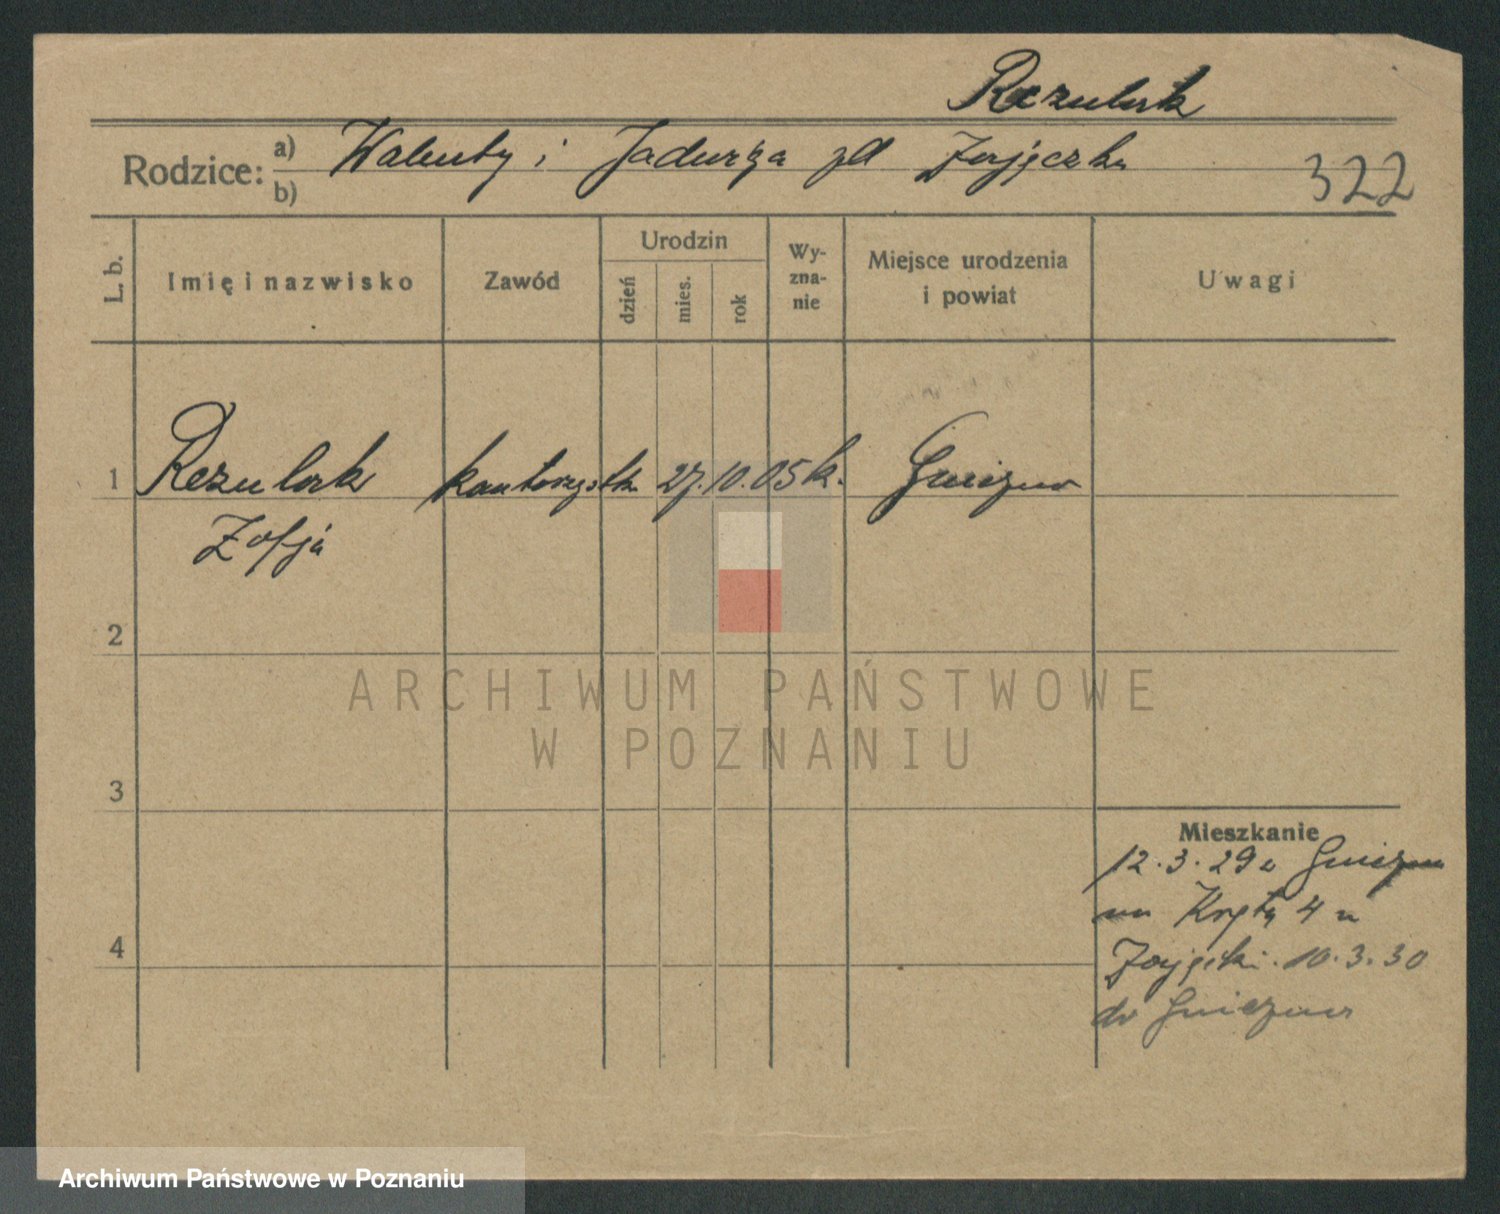 Rezulak
Rodzice: a) Walenty i Jadwiga zd Zajączka
b)
322
L. b.
Imię i nazwisko
Zawód
Urodzin
dzień
mies.
rok
Wy-
zna-
nie
Miejsce urodzenia
i powiat
Uwagi
1 Rezulak kantorzystka 27. 10. 05 k. Gniezno
Zofja
2
ARCHIWUM PAŃSTWOWE
W POZNANIU
3
Mieszkanie
12.3.29 z Gniezna
na Krętą 4 u
4
10.3.30
do Gniezna
Archiwum Państwowe w Poznaniu